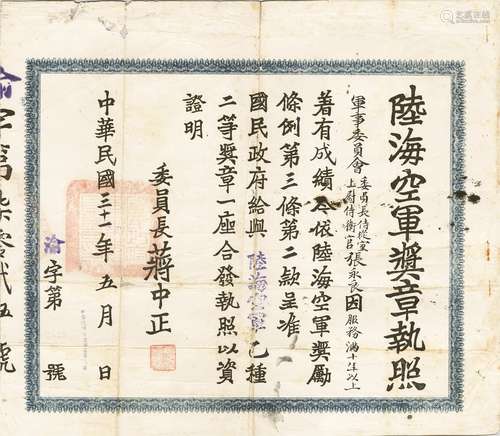 陸海空軍獎章執照
軍事委員會委員長侍從室
上尉侍衛官張永良因服務滿十年以上
著有成績今依陸海空軍獎勵
條例第三條第二款呈准
國民政府給與陸海空軍乙種
二等獎章一座合發執照以資
證明
委員長蔣中正
中華民國三十一年五月 日
渝字第 號
渝字第 零 號